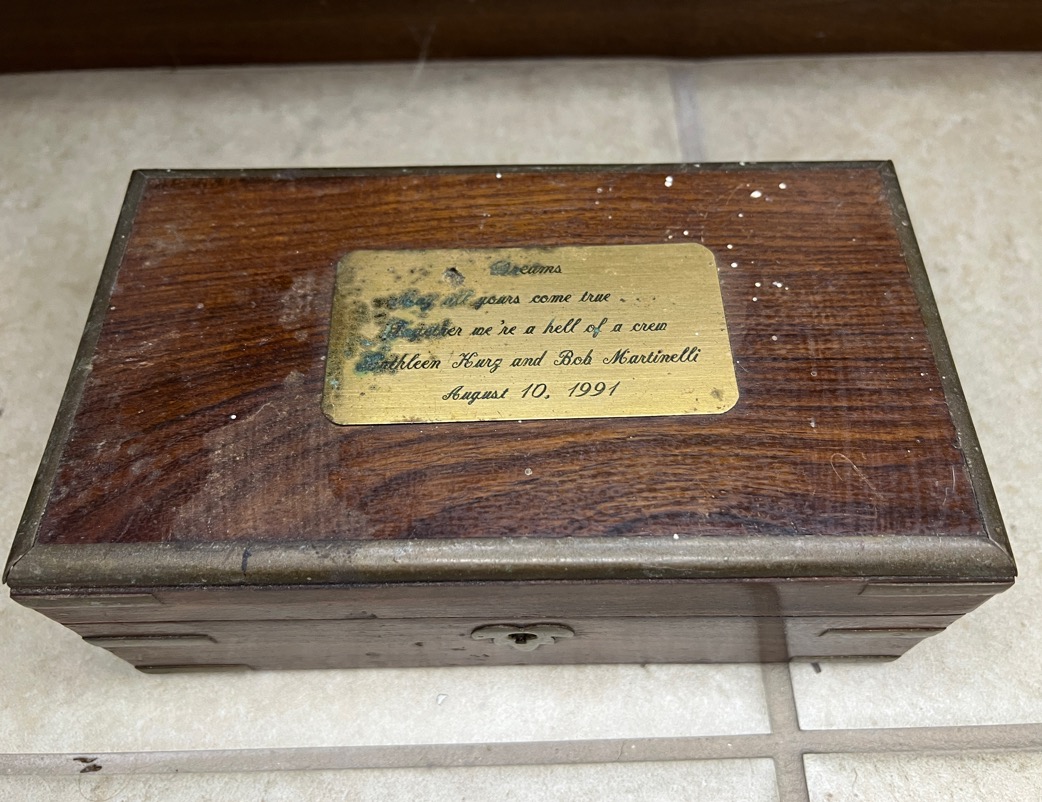 Dreams
May all yours come true . . .
Together we're a hell of a crew
Kathleen Kurz and Bob Martinelli
August 10, 1991